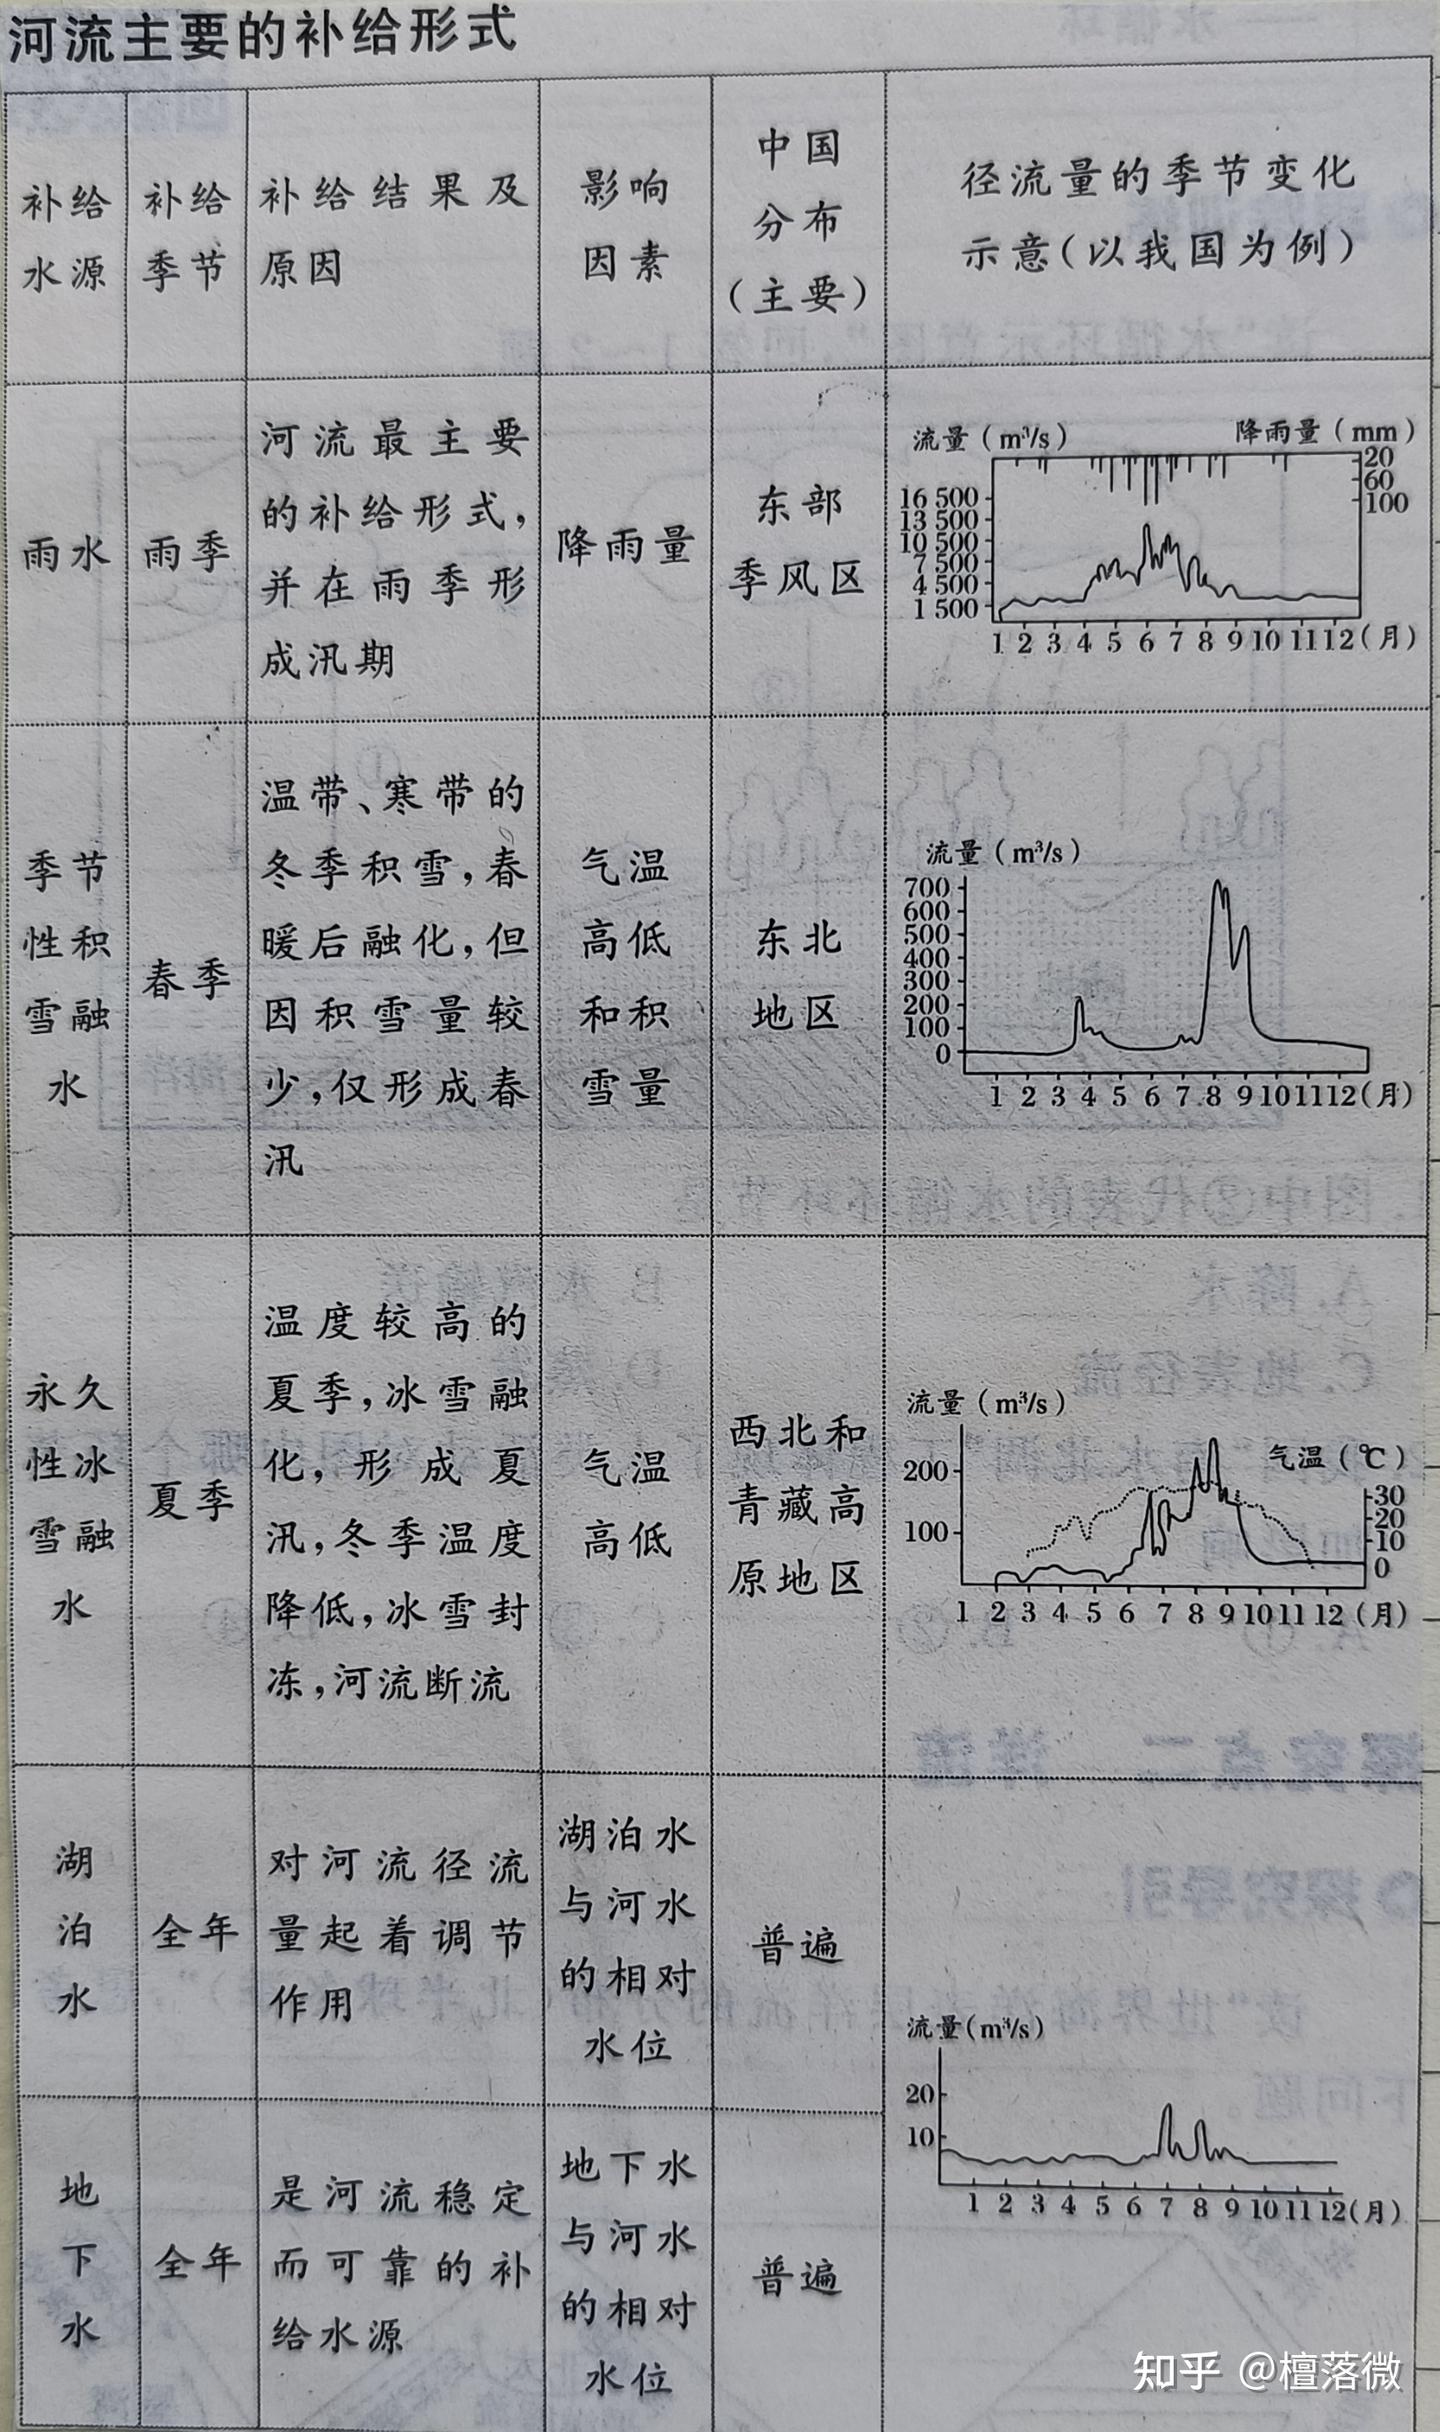 河流主要的补给形式
补给
水源
补给
季节
补给结果及
原因
影响
因素
中国
分布
(主要)
径流量的季节变化
示意(以我国为例)
雨水
雨季
河流最主要
的补给形式,
并在雨季形
成汛期
降雨量
东部
季风区
流量(m³/s)
降雨量(mm)
16 500
13 500
10 500
7 500
4 500
1 500
20
60
100
1 2 3 4 5 6 7 8 9 10 11 12(月)
季节
性积
雪融
水
春季
温带、寒带的
冬季积雪,春
暖后融化,但
因积雪量较
少,仅形成春
汛
气温
高低
和积
雪量
东北
地区
流量(m³/s)
700
600
500
400
300
200
100
0
1 2 3 4 5 6 7 8 9 10 11 12(月)
永久
性冰
雪融
水
夏季
温度较高的
夏季,冰雪融
化,形成夏
汛,冬季温度
降低,冰雪封
冻,河流断流
气温
高低
西北和
青藏高
原地区
流量(m³/s)
气温(℃)
200
100
30
20
10
0
1 2 3 4 5 6 7 8 9 10 11 12(月)
湖
泊
水
全年
对河流径流
量起着调节
作用
湖泊水
与河水
的相对
水位
普遍
流量(m³/s)
20
10
1 2 3 4 5 6 7 8 9 10 11 12(月)
地
下
水
全年
是河流稳定
而可靠的补
给水源
地下水
与河水
的相对
水位
普遍
知乎 @檀落微